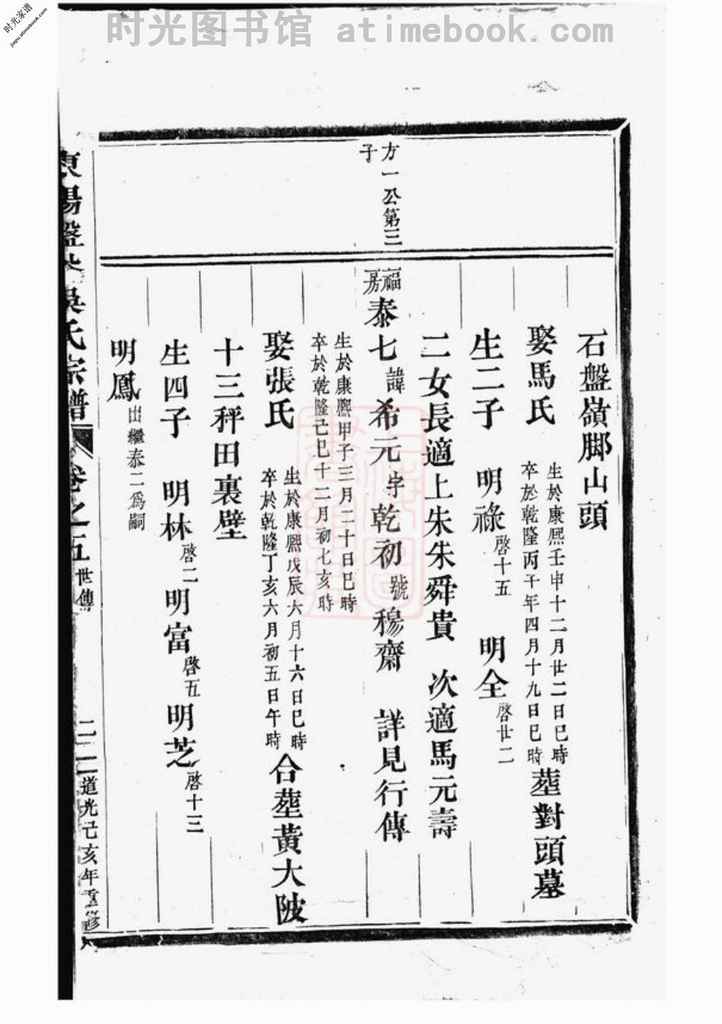 时光家谱
jiapu.atimebook.com
时光图书馆 atimebook.com
石盤嶺脚山頭
娶馬氏 生於康熙壬申十二月廿二日巳時 卒於乾隆丙午年四月十九日巳時 塟對頭墓
生二子 明祿 啓十五 明全 啓廿二
二女長適上朱朱舜貴 次適馬元壽
方一公第三子
福房 泰七 諱 希元 字 乾初 號 穆齋 詳見行傳
生於康熙甲子三月二十日巳時
卒於乾隆己巳十二月初七亥時
娶張氏 生於康熙戊辰六月十六日巳時 卒於乾隆丁亥六月初五日午時 合塟黃大陂
十三秤田裏壁
生四子 明林 啓二 明富 啓五 明芝 啓十三
明鳳 出繼泰二爲嗣
東陽盤 吳氏宗譜 卷之五 世傳 二二 道光己亥年重修